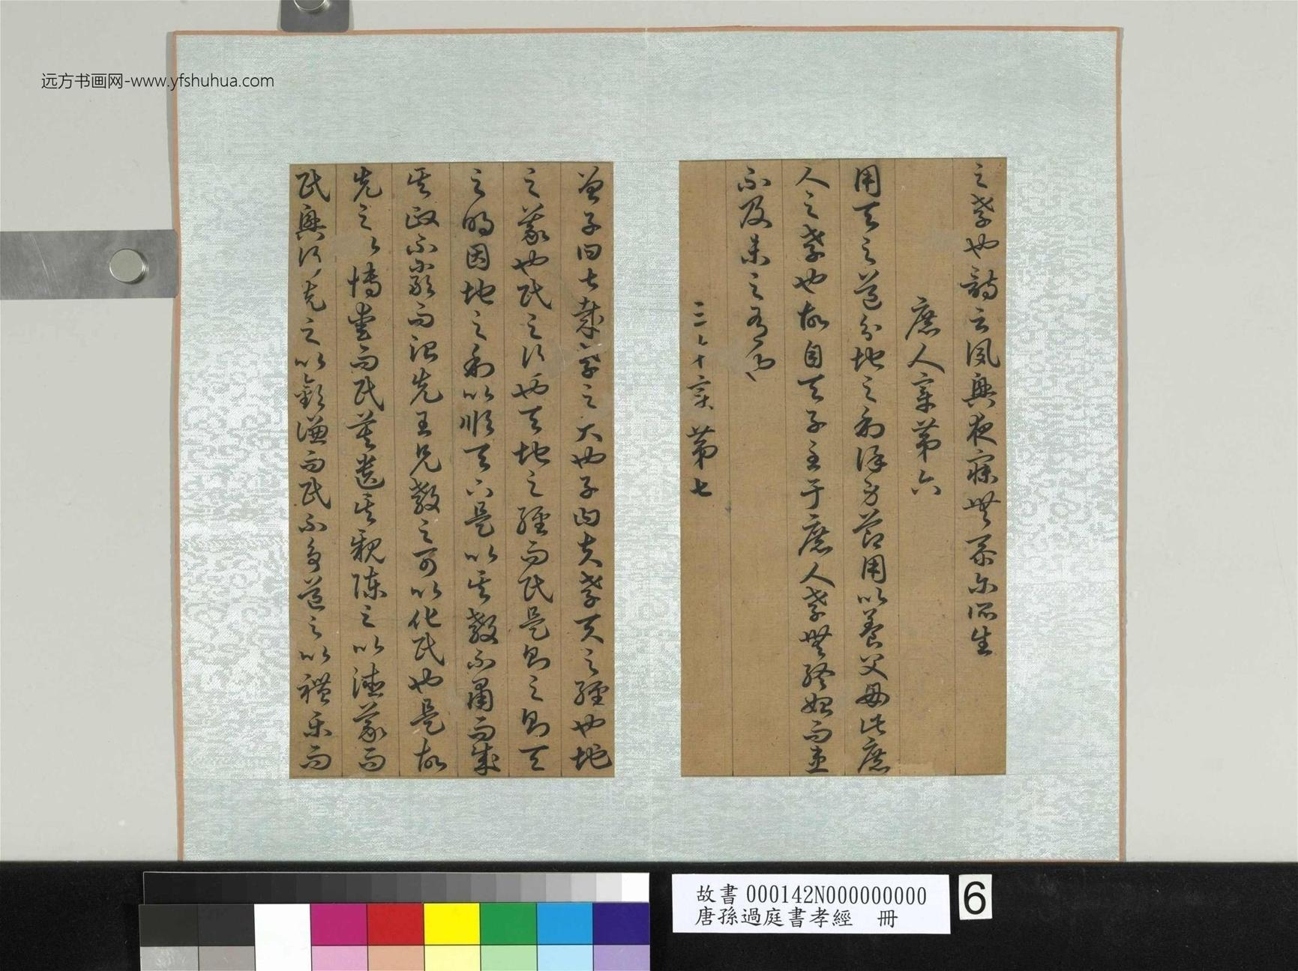 远方书画网-www.yfshuhua.com
之孝也詩云夙興夜寐無忝尔所生
庶人章第六
用天之道分地之利謹身節用以養父母此庶
人之孝也故自天子至于庶人孝無終始而患
不及者未之有也
三才章第七
曾子曰甚哉孝之大也子曰夫孝天之經也地
之義也民之行也天地之經而民是則之則天
之明因地之利以順天下是以其教不肅而成
其政不嚴而治先王見教之可以化民也是故
先之以博愛而民莫遺其親陳之以德義而
民興行先之以敬讓而民不爭道之以禮樂而
故書 000142N000000000
唐孫過庭書孝經 冊
6